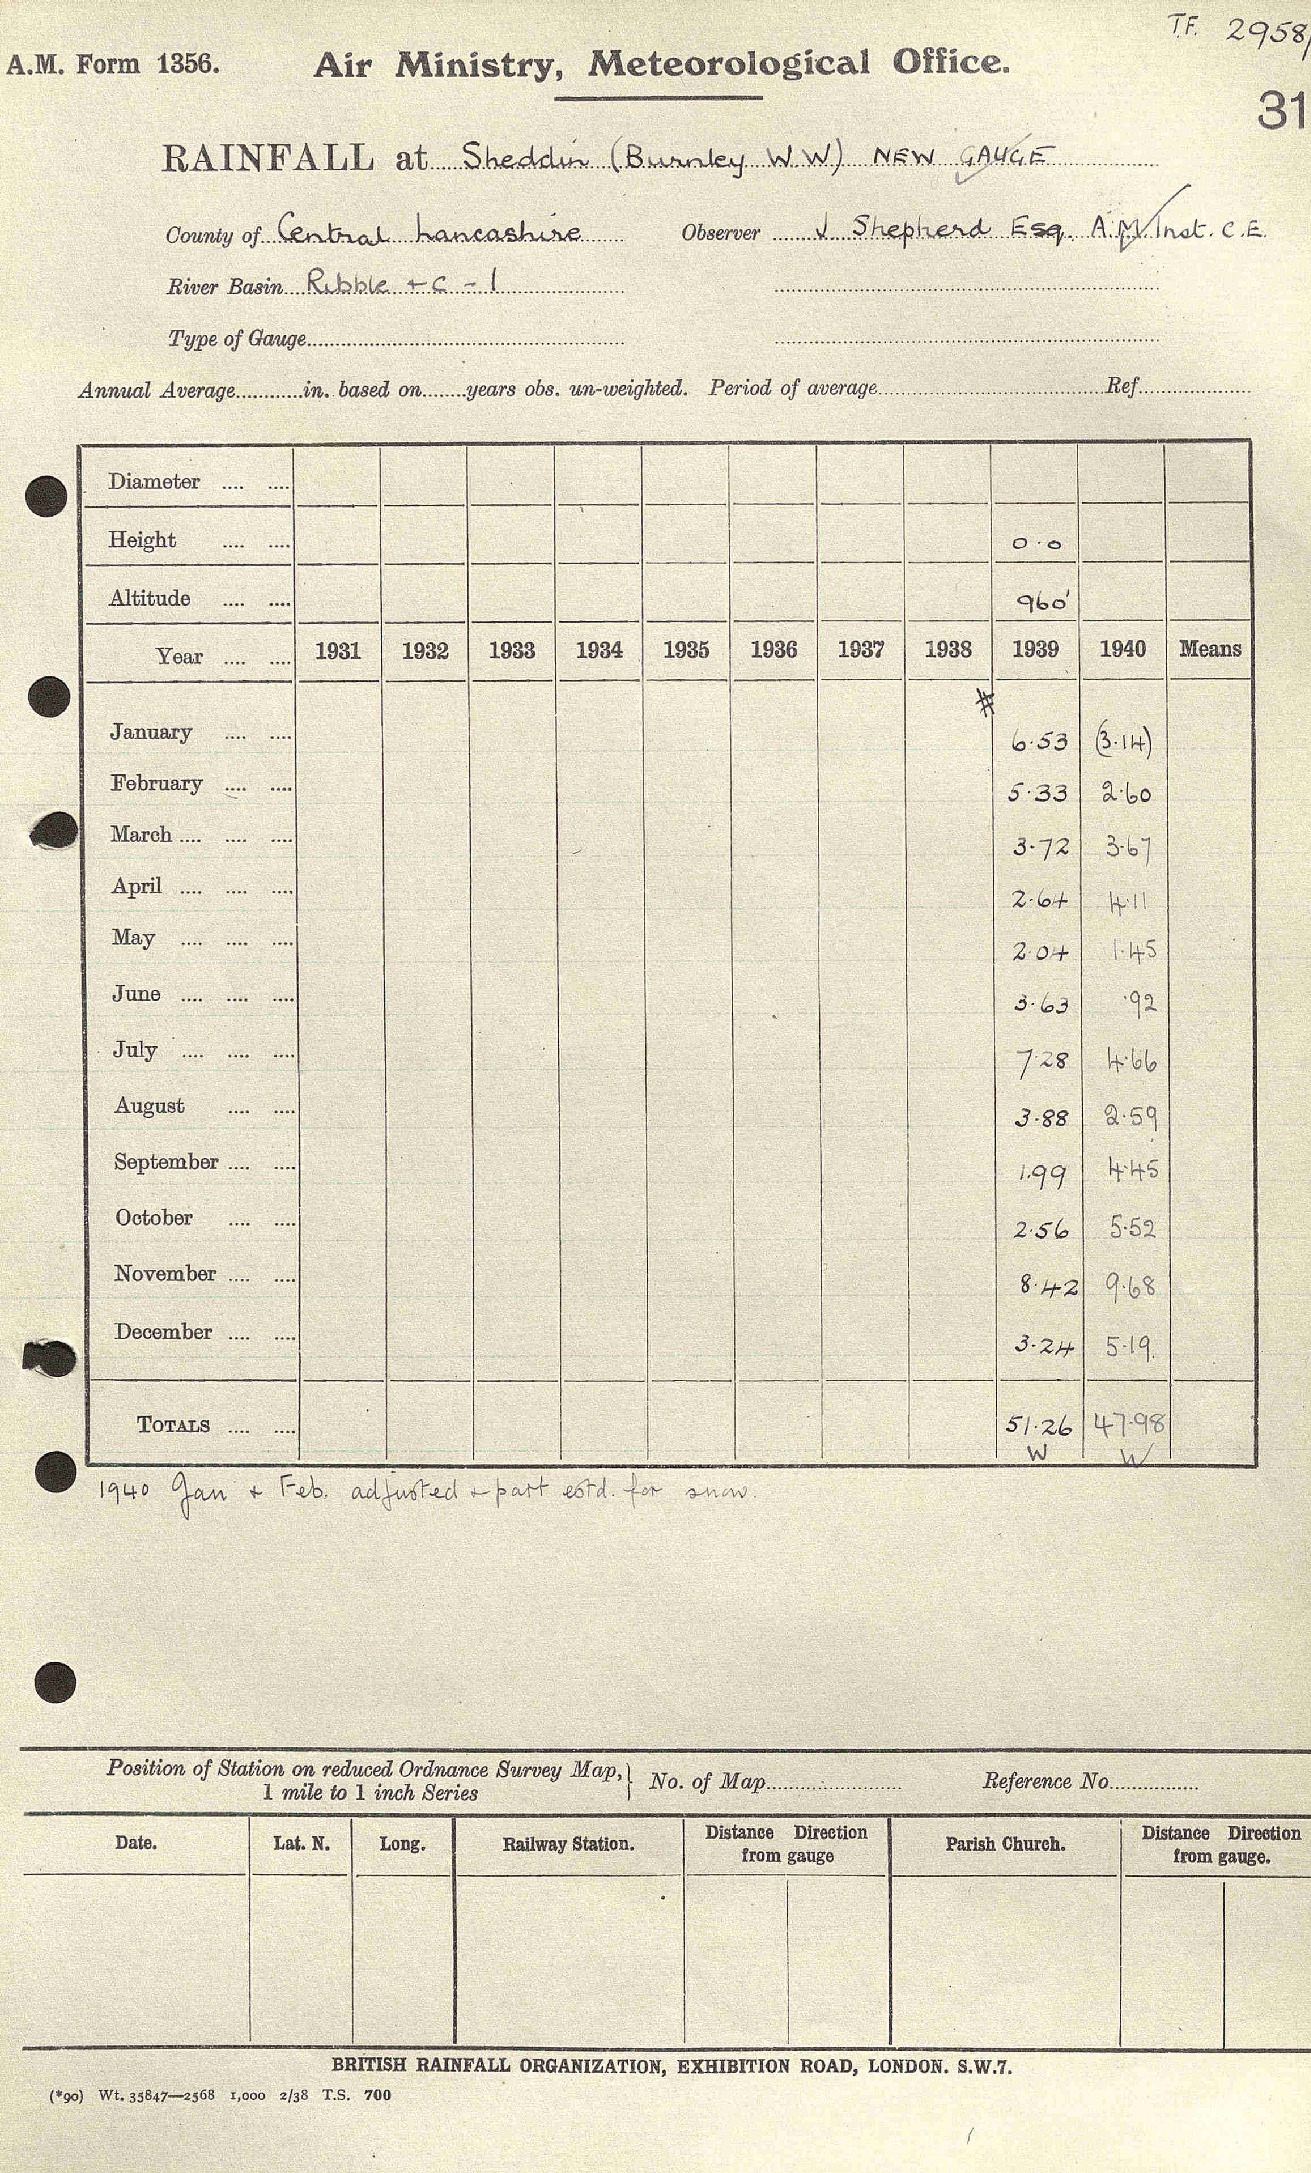 T.F. 2958/
A.M. Form 1356. Air Ministry, Meteorological Office.
31
RAINFALL at Sheddin (Burnley W.W) NEW GAUGE
County of Central Lancashire Observer J Shepherd Esq. A.M.Inst. C.E.
River Basin Ribble + C - 1
Type of Gauge
Annual Average in. based on years obs. un-weighted. Period of average Ref
Diameter
Height 0.0
Altitude 960'
Year 1931 1932 1933 1934 1935 1936 1937 1938 1939 1940 Means
#
January 6.53 (3.14)
February 5.33 2.60
March 3.72 3.67
April 2.64 4.11
May 2.04 1.45
June 3.63 .92
July 7.28 4.66
August 3.88 2.59
September 1.99 4.45
October 2.56 5.52
November 8.42 9.68
December 3.24 5.19
TOTALS 51.26 47.98
W W
1940 Jan + Feb. adjusted + part estd. for snow.
Position of Station on reduced Ordnance Survey Map, } No. of Map Reference No.
1 mile to 1 inch Series
Date. Lat. N. Long. Railway Station. Distance Direction from gauge Parish Church. Distance Direction from gauge.
BRITISH RAINFALL ORGANIZATION, EXHIBITION ROAD, LONDON. S.W.7.
(*90) Wt. 35847—2568 1,000 2/38 T.S. 700